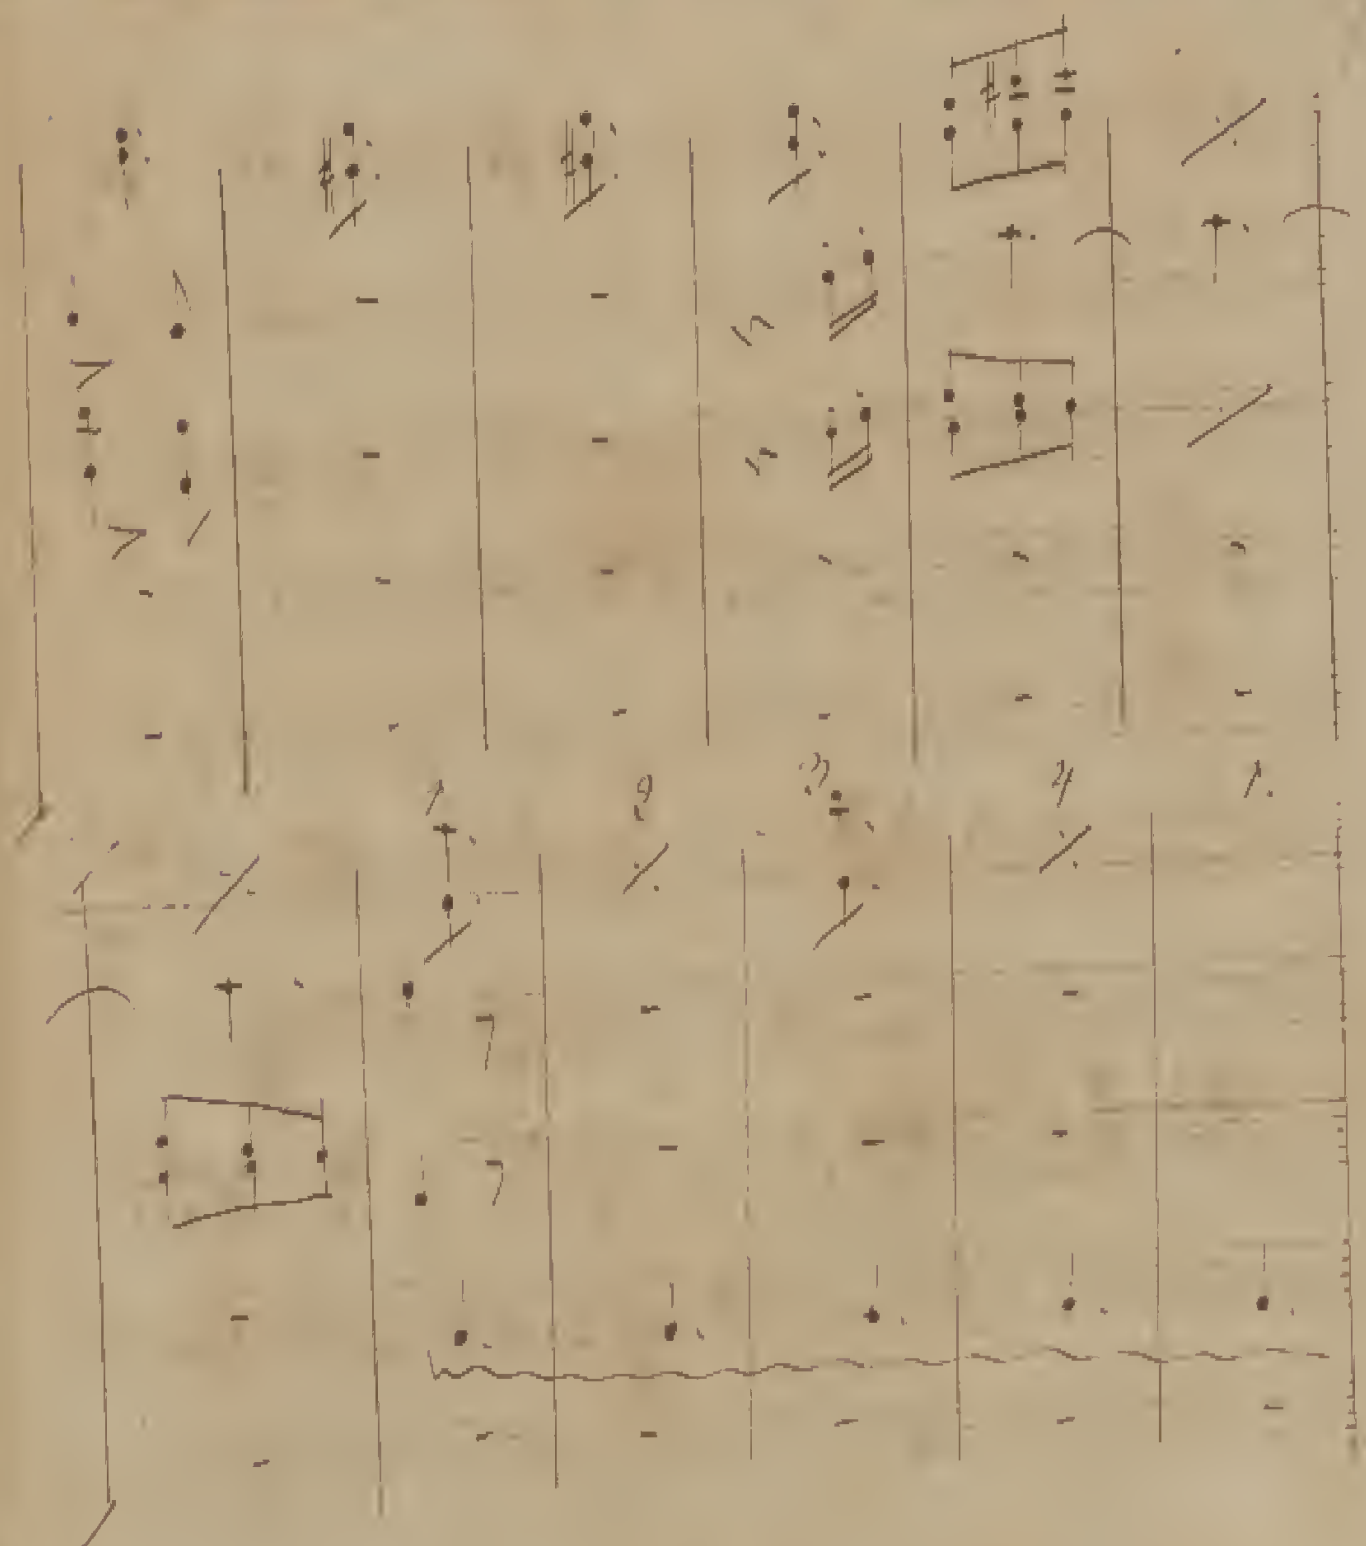 1 2 3 4 1.